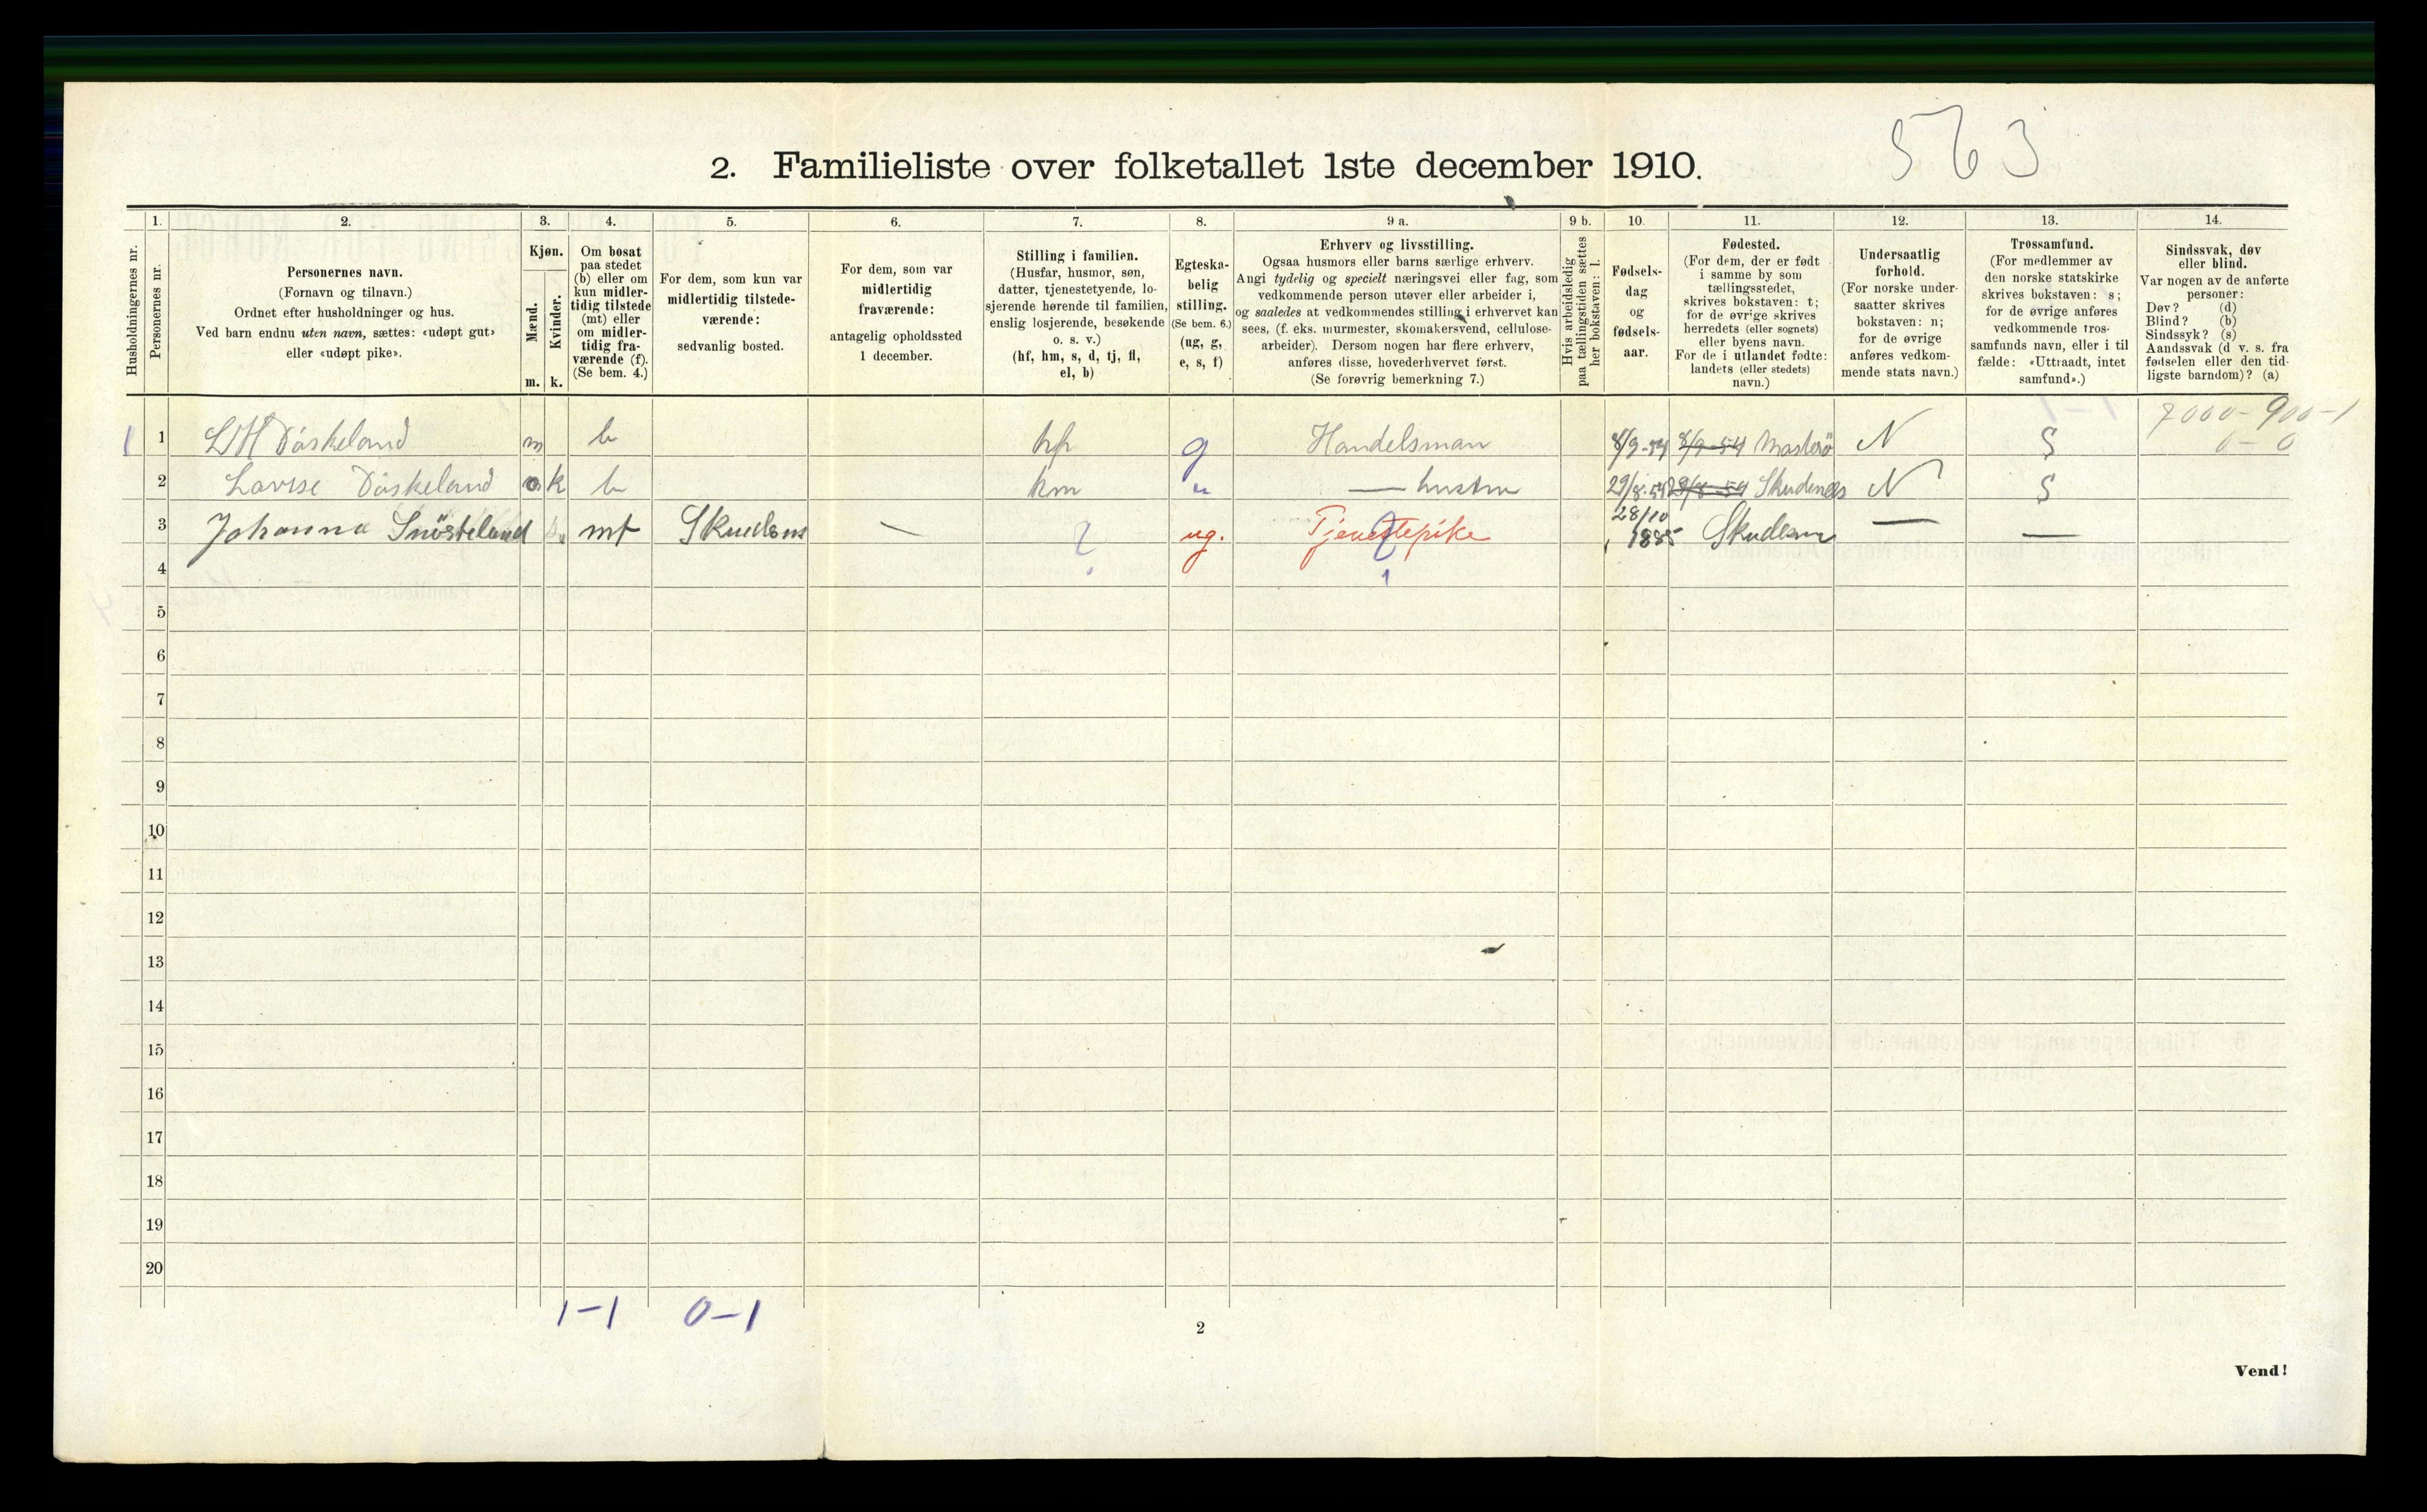 563
2. Familieliste over folketallet 1ste december 1910.
Husholdningernes nr.
1.
Personernes nr.
2.
Personernes navn.
(Fornavn og tilnavn.)
Ordnet efter husholdninger og hus.
Ved barn endnu uten navn, sættes: «udøpt gut»
eller «udøpt pike».
3.
Kjøn.
Mænd.
Kvinder.
m. k.
4.
Om bosat
paa stedet
(b) eller om
kun midler-
tidig tilstede
(mt) eller
om midler-
tidig fra-
værende (f).
(Se bem. 4.)
5.
For dem, som kun var
midlertidig tilstede-
værende:
sedvanlig bosted.
6.
For dem, som var
midlertidig
fraværende:
antagelig opholdssted
1 december.
7.
Stilling i familien.
(Husfar, husmor, søn,
datter, tjenestetyende, lo-
sjerende hørende til familien,
enslig losjerende, besøkende
o. s. v.)
(hf, hm, s, d, tj, fl,
el, b)
8.
Egteska-
belig
stilling.
(Se bem. 6.)
(ug, g,
e, s, f)
9 a.
Erhverv og livsstilling.
Ogsaa husmors eller barns særlige erhverv.
Angi tydelig og specielt næringsvei eller fag, som
vedkommende person utøver eller arbeider i,
og saaledes at vedkommendes stilling i erhvervet kan
sees, (f. eks. murmester, skomakersvend, cellulose-
arbeider). Dersom nogen har flere erhverv,
anføres disse, hovederhvervet først.
(Se forøvrig bemerkning 7.)
9 b.
Hvis arbeidsledig
paa tællingstiden sættes
her bokstaven: l.
10.
Fødsels-
dag
og
fødsels-
aar.
11.
Fødested.
(For dem, der er født
i samme by som
tællingsstedet,
skrives bokstaven: t;
for de øvrige skrives
herredets (eller sognets)
eller byens navn.
For de i utlandet fødte:
landets (eller stedets)
navn.)
12.
Undersaatlig
forhold.
(For norske under-
saatter skrives
bokstaven: n;
for de øvrige
anføres vedkom-
mende stats navn.)
13.
Trossamfund.
(For medlemmer av
den norske statskirke
skrives bokstaven: s;
for de øvrige anføres
vedkommende tros-
samfunds navn, eller i til
fælde: «Uttraadt, intet
samfund».)
14.
Sindssvak, døv
eller blind.
Var nogen av de anførte
personer:
Døv? (d)
Blind? (b)
Sindssyk? (s)
Aandssvak (d v. s. fra
fødselen eller den tid-
ligste barndom)? (a)
7000-900-1
0-0
1 1 m b g Handelsman 8/9-54 8/9-54 Mosterö N S
2 Lovise k b " — hustru 29/8-54 29/8-54 Skudenes N S
3 Johanna mt ? ug. Tjenestepike ? 28/10 1885 — —
4
5
6
7
8
9
10
11
12
13
14
15
16
17
18
19
20
1-1 0-1
2
Vend!